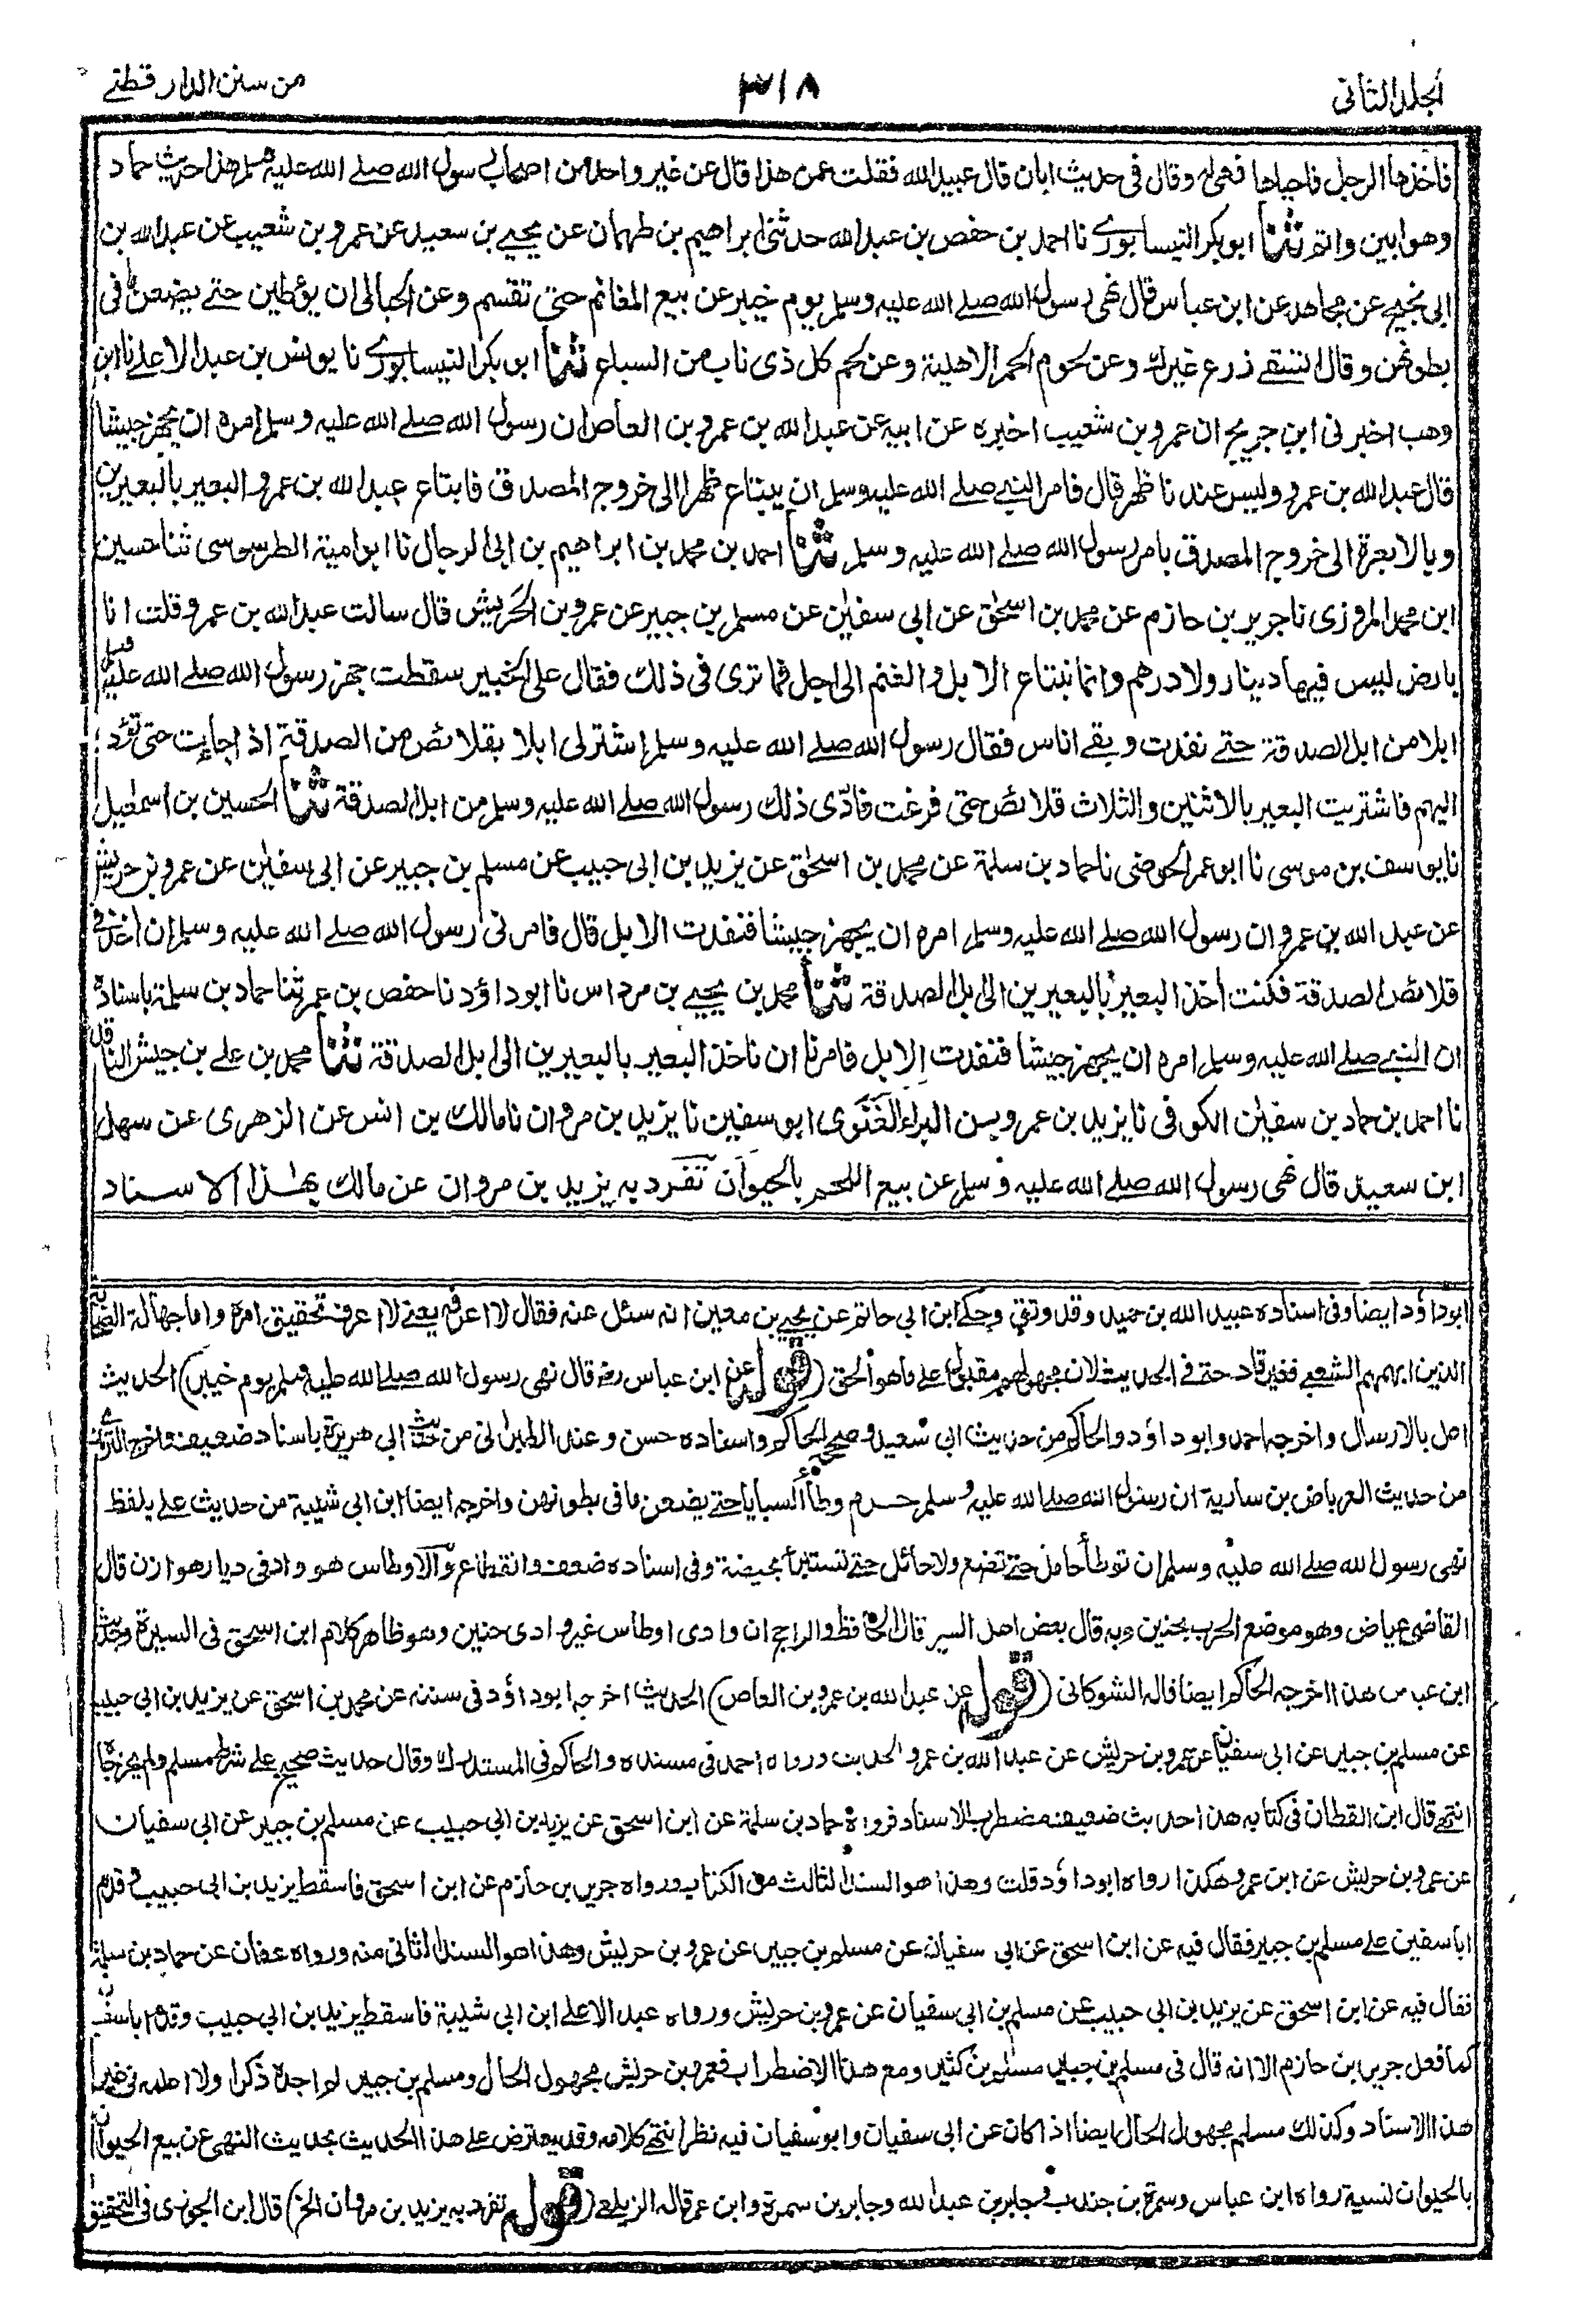 الجلد الثاني
٣١٨
من سنن الدار قطنے
فاخذها الرجل فاحياها فهى له وقال فى حديث ابان قال عبيد الله فقلت عمن هذا قال عن غير واحد من اصحاب رسول الله صلے الله عليه وسلم هذا حديث حماد
وهو ابين واتم ثنا ابو بكر النيسابورے نا احمد بن حفص بن عبد الله حدثنى ابى نا ابراهيم بن طهمان عن يحيے بن سعيد عن عمرو بن شعيب عن عبد الله بن
ابى نجيح عن مجاهد عن ابن عباس قال نهى رسول الله صلے الله عليه وسلم يوم خيبر عن بيع المغانم حتى تقسم وعن الحبالى ان يؤطين حتے يضعن ما فى
بطونهن وقال اتسقے زرع غيرك وعن لحوم الحمر الاهلية وعن لحم كل ذى ناب من السباع ثنا ابو بكر النيسابورے نا يونس بن عبد الاعلے نا ابن
وهب اخبرنى ابن جريج ان عمرو بن شعيب اخبره عن ابيه عن عبد الله بن عمرو بن العاص ان رسول الله صلے الله عليه وسلم امره ان يجهز جيشا
قال عبد الله بن عمرو وليس عندنا ظهر قال فامر النبے صلے الله عليه وسلم ان يبتاع ظهرا الى خروج المصدق فابتاع عبد الله بن عمرو البعير بالبعيرين
وبالابعرة الى خروج المصدق بامر رسول الله صلے الله عليه وسلم ثنا احمد بن محمد بن ابراهيم بن ابى الرجال نا ابو امية الطرسوسى ثنا حسين
ابن محمد المروزى نا جرير بن حازم عن محمد بن اسحٰق عن ابى سفيٰن عن مسلم بن جبير عن عمرو بن الحَريش قال سالت عبد الله بن عمرو قلت انا
بارض ليس فيها دينار ولا درهم وانما نبتاع الابل والغنم الى اجل فما ترى فى ذلك فقال على الخبير سقطت جهز رسول الله صلے الله عليه وسلم
ابلا من ابل الصدقة حتے نفدت وبقے اناس فقال رسول الله صلے الله عليه وسلم اشتر لى ابلا بقلائص من الصدقة اذا جاءت حتى تؤد
اليهم فاشتريت البعير بالاثنين والثلاث قلائص حتى فرغت فادّى ذلك رسول الله صلے الله عليه وسلم من ابل الصدقة ثنا الحسين بن اسمٰعيل
نا يوسف بن موسى نا ابو عمر الحوضى نا حماد بن سلمة عن محمد بن اسحٰق عن يزيد بن ابى حبيب عن مسلم بن جبير عن ابى سفيٰن عن عمرو بن حريش
عن عبد الله بن عمرو ان رسول الله صلے الله عليه وسلم امره ان يجهز جيشا فنفدت الابل قال فامرنى رسول الله صلے الله عليه وسلم ان اٰخذ فى
قلائص الصدقة فكنت اٰخذ البعير بالبعيرين الى ابل الصدقة ثنا محمد بن يحيے بن مرداس نا ابو داؤد نا حفص بن عمر ثنا حماد بن سلمة باسناده
ان النبے صلے الله عليه وسلم امره ان يجهز جيشا فنفدت الابل فامرنا ان ناخذ البعير بالبعيرين الى ابل الصدقة ثنا محمد بن علے بن حبيش الناقد
نا احمد بن حماد بن سفيٰن الكوفى نا يزيد بن عمرو بن البراء الغَنَوى ابو سفيٰن نا يزيد بن مروان نا مالك بن انس عن الزهرى عن سهل
ابن سعيد قال نهى رسول الله صلے الله عليه وسلم عن بيع اللحم بالحيوان تفرد به يزيد بن مروان عن مالك بهٰذا الاسناد
ابوداؤد ايضا وفى اسناده عبيد الله بن حميد وقد وثق وحكے ابن ابى حاتم عن يحيے بن معين انه سئل عنه فقال لا اعرفه يعنے لا اعرف تحقيق امره واما جهالة الصحابة
الذين ابهمهم الشعبے فغير قادحة فى الحديث لان مجهولهم مقبول علے ما هو الحق (قوله عن ابن عباس رضه قال نهى رسول الله صلے الله عليه وسلم يوم خيبر) الحديث
اعل بالارسال واخرجه احمد وابو داؤد والحاكم من حديث ابى سعيد وصححه الحاكم واسناده حسن وعند الطبرانى من حديث ابى هريرة باسناد ضعيف واخرج الترمذے
من حديث العرباض بن سارية ان رسول الله صلے الله عليه وسلم حرم وطأ السبايا حتے يضعن ما فى بطونهن واخرجه ايضا ابن ابى شيبة من حديث علے بلفظ
نهى رسول الله صلے الله عليه وسلم ان توطأ حامل حتے تضع ولا حائل حتے تستبرأ بحيضة وفى اسناده ضعف وانقطاع والاوطاس هو واد فى ديار هوازن قال
القاضى عياض وهو موضع الحرب بحنين وبه قال بعض اهل السير قال الحافظ والراجح ان وادى اوطاس غير وادى حنين وهو ظاهر كلام ابن اسحق فى السيرة وحديث
ابن عباس هذا اخرجه الحاكم ايضا قاله الشوكانى (قوله عن عبد الله بن عمرو بن العاص) الحديث اخرجه ابو داؤد فى سننه عن محمد بن اسحق عن يزيد بن ابى حبيب
عن مسلم بن جبير عن ابى سفيان عن عمرو بن حريش عن عبد الله بن عمرو الحديث ورواه احمد فى مسنده والحاكم فى المستدرك وقال حديث صحيح علے شرط مسلم ولم يخرجاه
انتهے قال ابن القطان فى كتابه هذا حديث ضعيف مضطرب الاسناد فرواه حماد بن سلمة عن ابن اسحق عن يزيد بن ابى حبيب عن مسلم بن جبير عن ابى سفيان
عن عمرو بن حريش عن ابن عمرو هكذا رواه ابو داؤد قلت وهذا هو السند الثالث من الكتاب ورواه جرير بن حازم عن ابن اسحق فاسقط يزيد بن ابى حبيب وقدم
ابا سفين علے مسلم بن جبير فقال فيه عن ابن اسحق عن ابى سفيان عن مسلم بن جبير عن عمرو بن حريش وهذا هو السند الثانى منه ورواه عفان عن حماد بن سلمة
فقال فيه عن ابن اسحق عن يزيد بن ابى حبيب عن مسلم بن ابى سفيان عن عمرو بن حريش ورواه عبد الاعلے ابن ابى شيبة فاسقط يزيد بن ابى حبيب وقدم ابا سفين
كما فعل جرير ابن حازم الا انه قال فى مسلم بن جبير مسلم بن كثير ومع هذا الاضطراب فعمرو بن حريش مجهول الحال ومسلم بن جبير لم اجد له ذكرا ولا اعلمه فى غير
هذا الاسناد وكذلك مسلم مجهول الحال ايضا اذا كان عن ابى سفيان وابو سفيان فيه نظر انتهے كلامه وقد يعترض علے هذا الحديث بحديث النهى عن بيع الحيوان
بالحيوان نسية رواه ابن عباس وسمرة بن جندب وجابر بن عبد الله وجابر بن سمرة وابن عمر قاله الزيلعے (قوله تفرد به يزيد بن مروان الخ) قال ابن الجوزى فى التحقيق